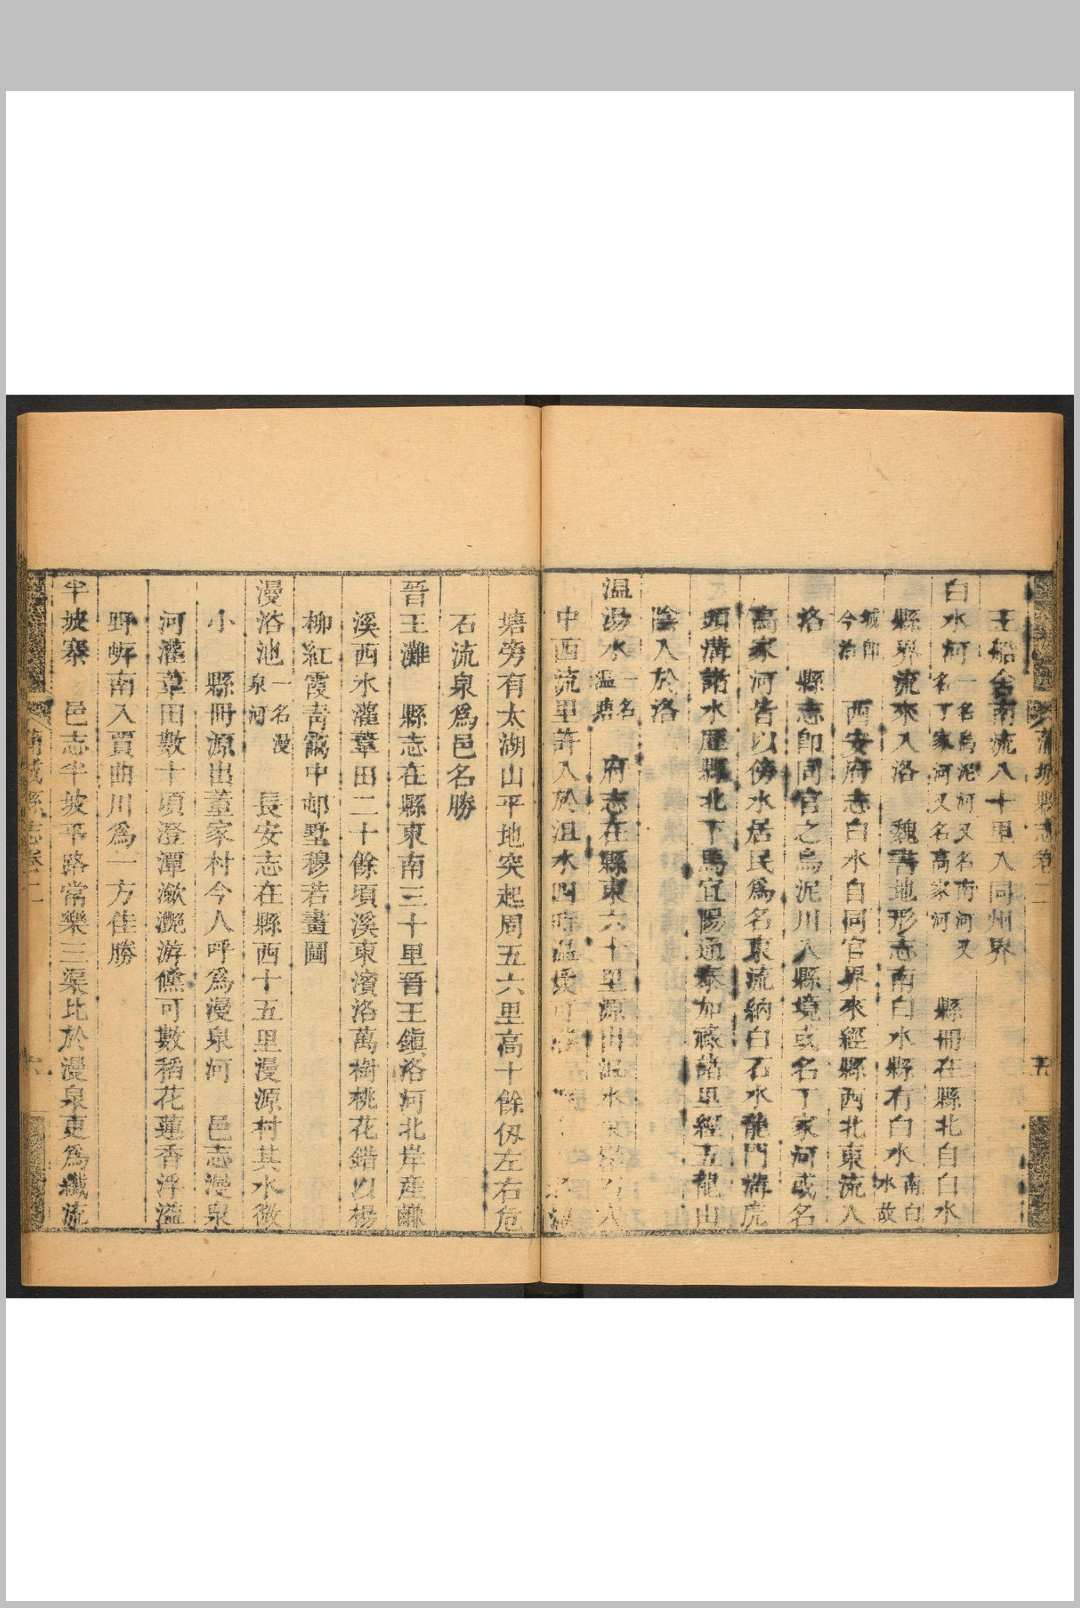 蒲城縣志卷二
五
王船舍南流八十里入同州界
白水河一名烏泥河又名南河又名丁家河又名高家河 縣冊在縣北自白水
縣界流來入洛 魏書地形志南白水縣有白水南白水故
城即今治 西安府志白水自同官界來經縣西北東流入
洛 縣志即同官之烏泥川入縣境或名丁家河或名
高家河皆以傍水居民為名東流納白石水龍門溝虎
頭溝諸水歷縣北下馬宜陽通泰加祿諸里經五龍山
陰入於洛
温湯水一名温泉 府志在縣東六十里源出
中西流里許入於沮水四時温
塘旁有太湖山平地突起周五六里高十餘仭左右危
石流泉爲邑名勝
晉王灘 縣志在縣東南三十里晉王鎭洛河北岸產鹻
溪西水灌葦田二十餘頃溪東濱洛萬樹桃花錯以楊
柳紅霞青靄中邨墅穆若畫圖
漫浴池一名漫泉河 長安志在縣西十五里漫源村其水微
小 縣冊源出董家村今人呼爲漫泉河 邑志漫泉
河灌葦田數十頃澄潭瀲灔游鯈可數稻花蓮香浮溢
野㟁南入賈曲川爲一方佳勝
半坡寨 邑志半坡平路常樂三渠比於漫泉更爲纖流
蒲城縣志卷二
六